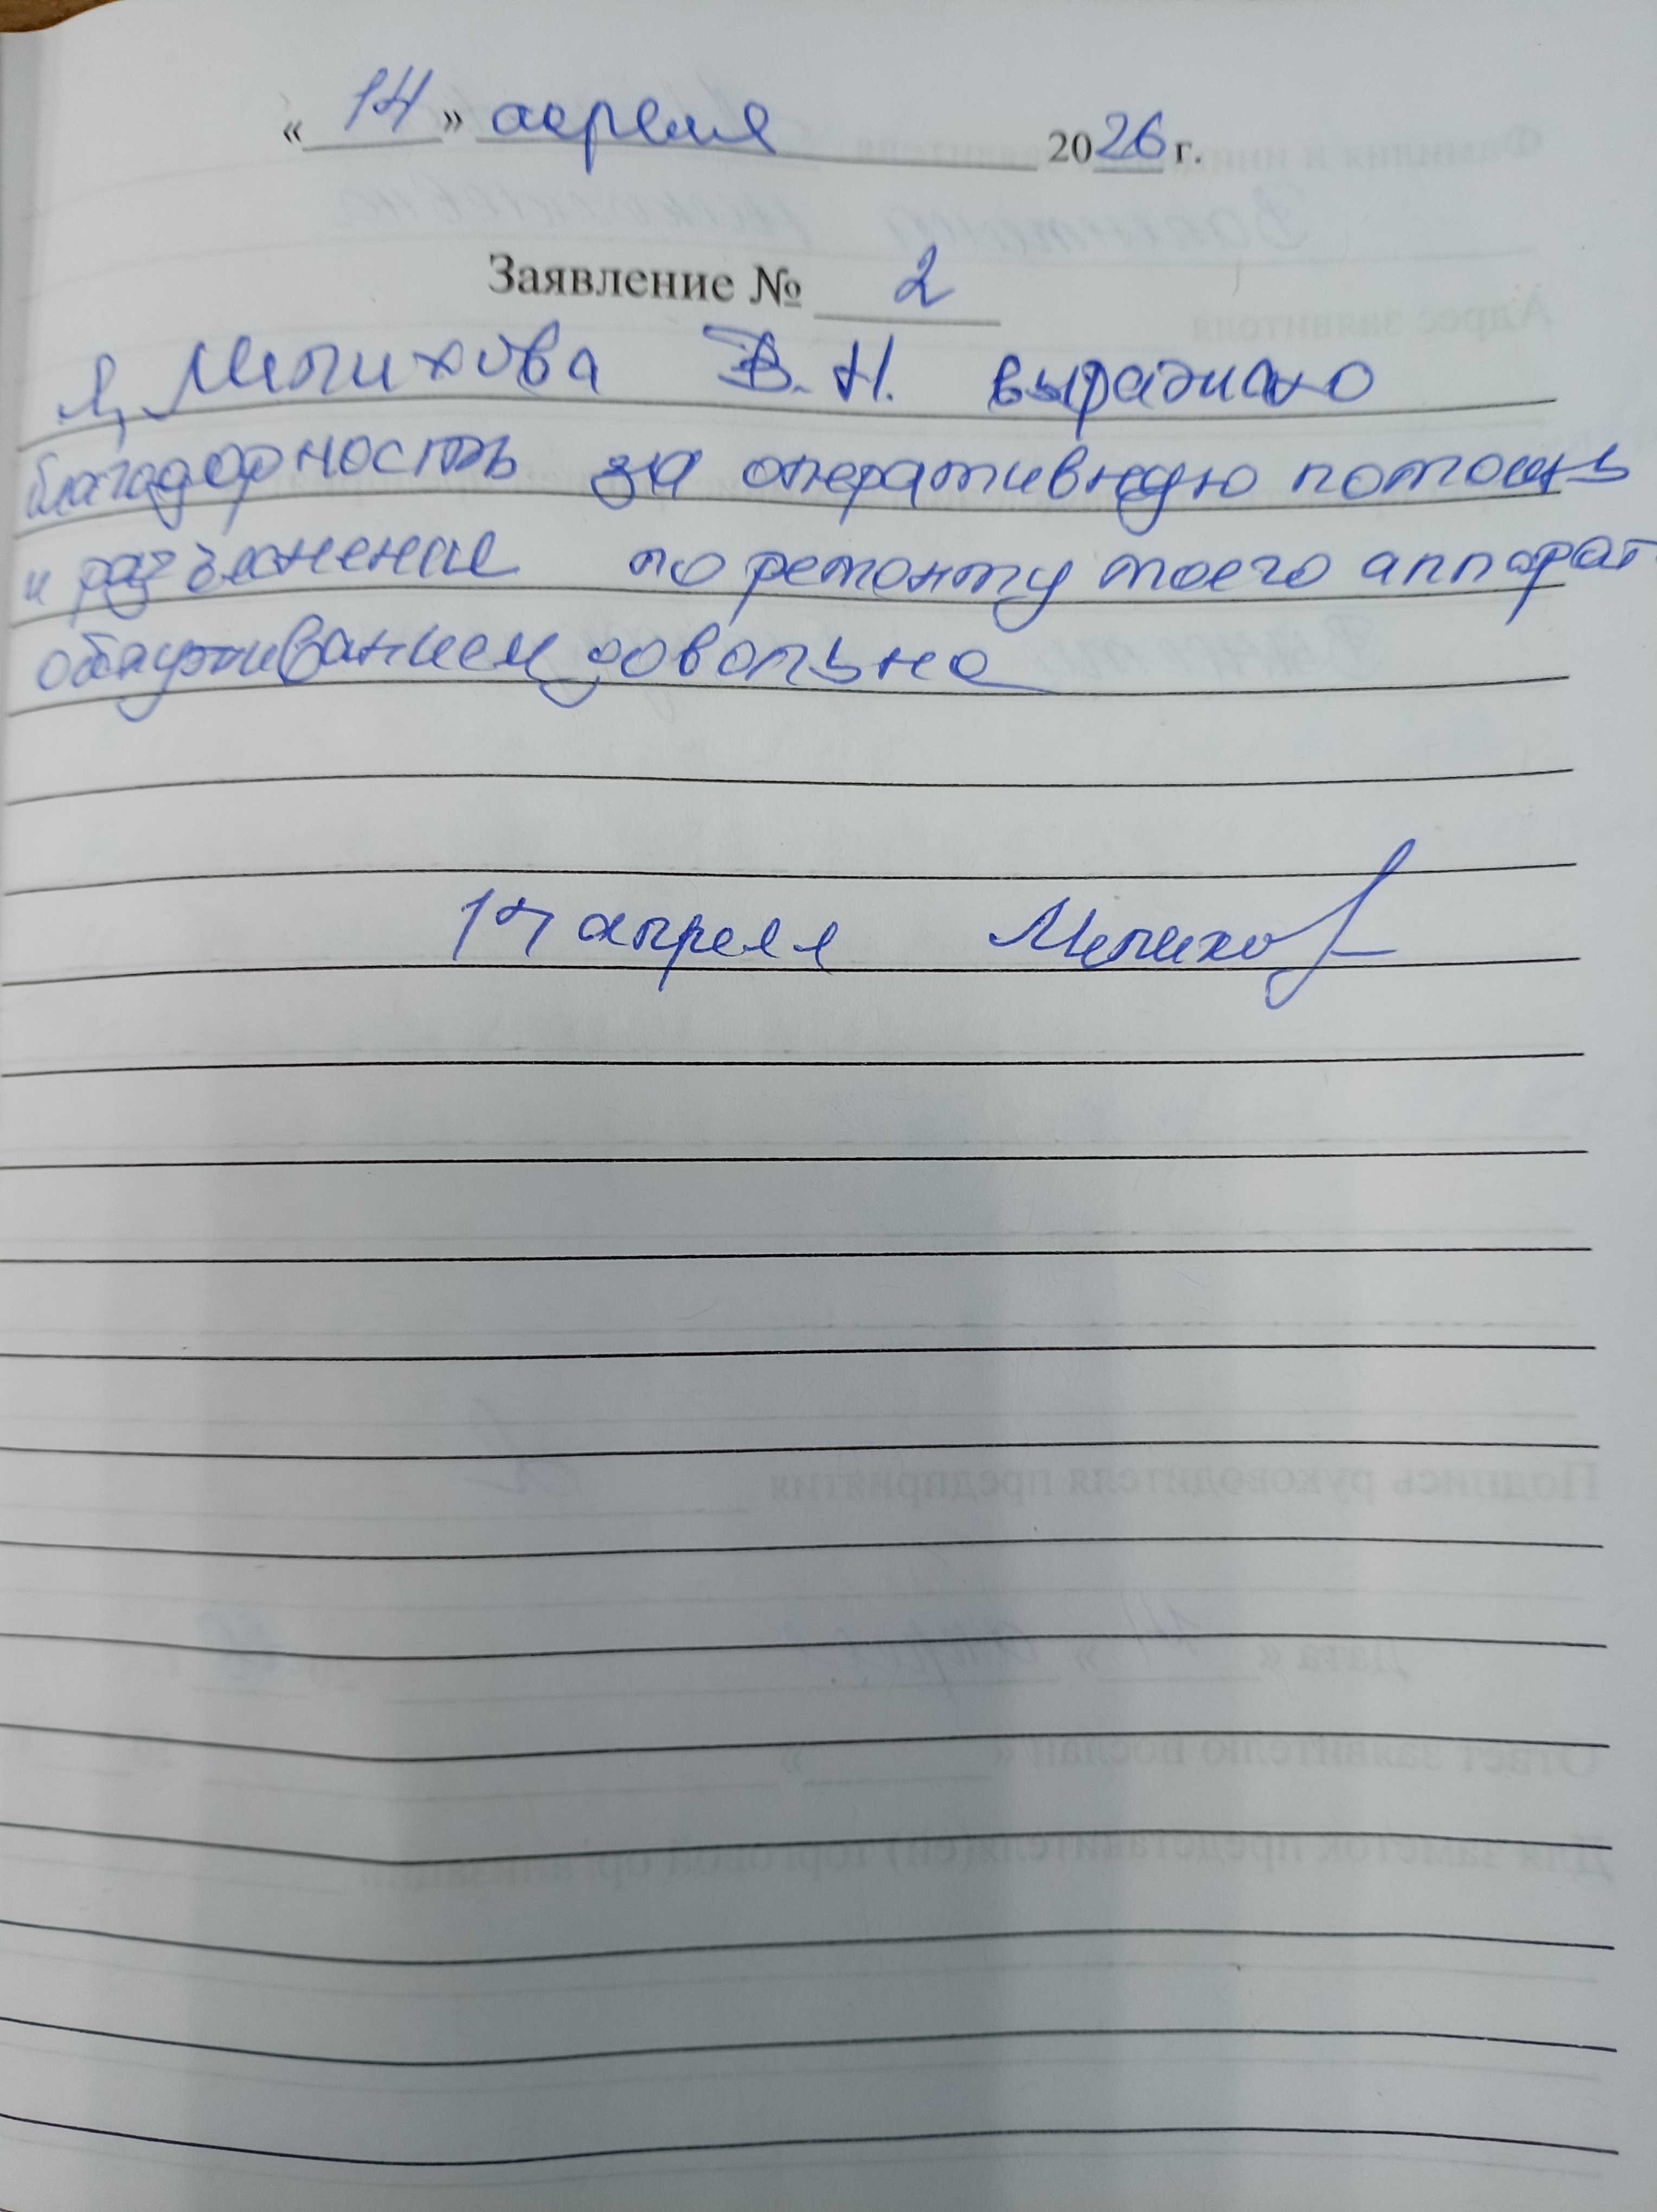 « 14 » апреля 2026 г.
Заявление № 2
Я, Мелихова В.Н. выражаю
благодарность за оперативную помощь
и разъяснение по ремонту моего аппарат
обслуживанием довольна
14 апреля Мелихов